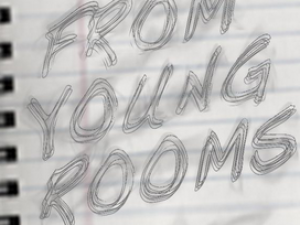 FROM
YOUNG
ROOMS